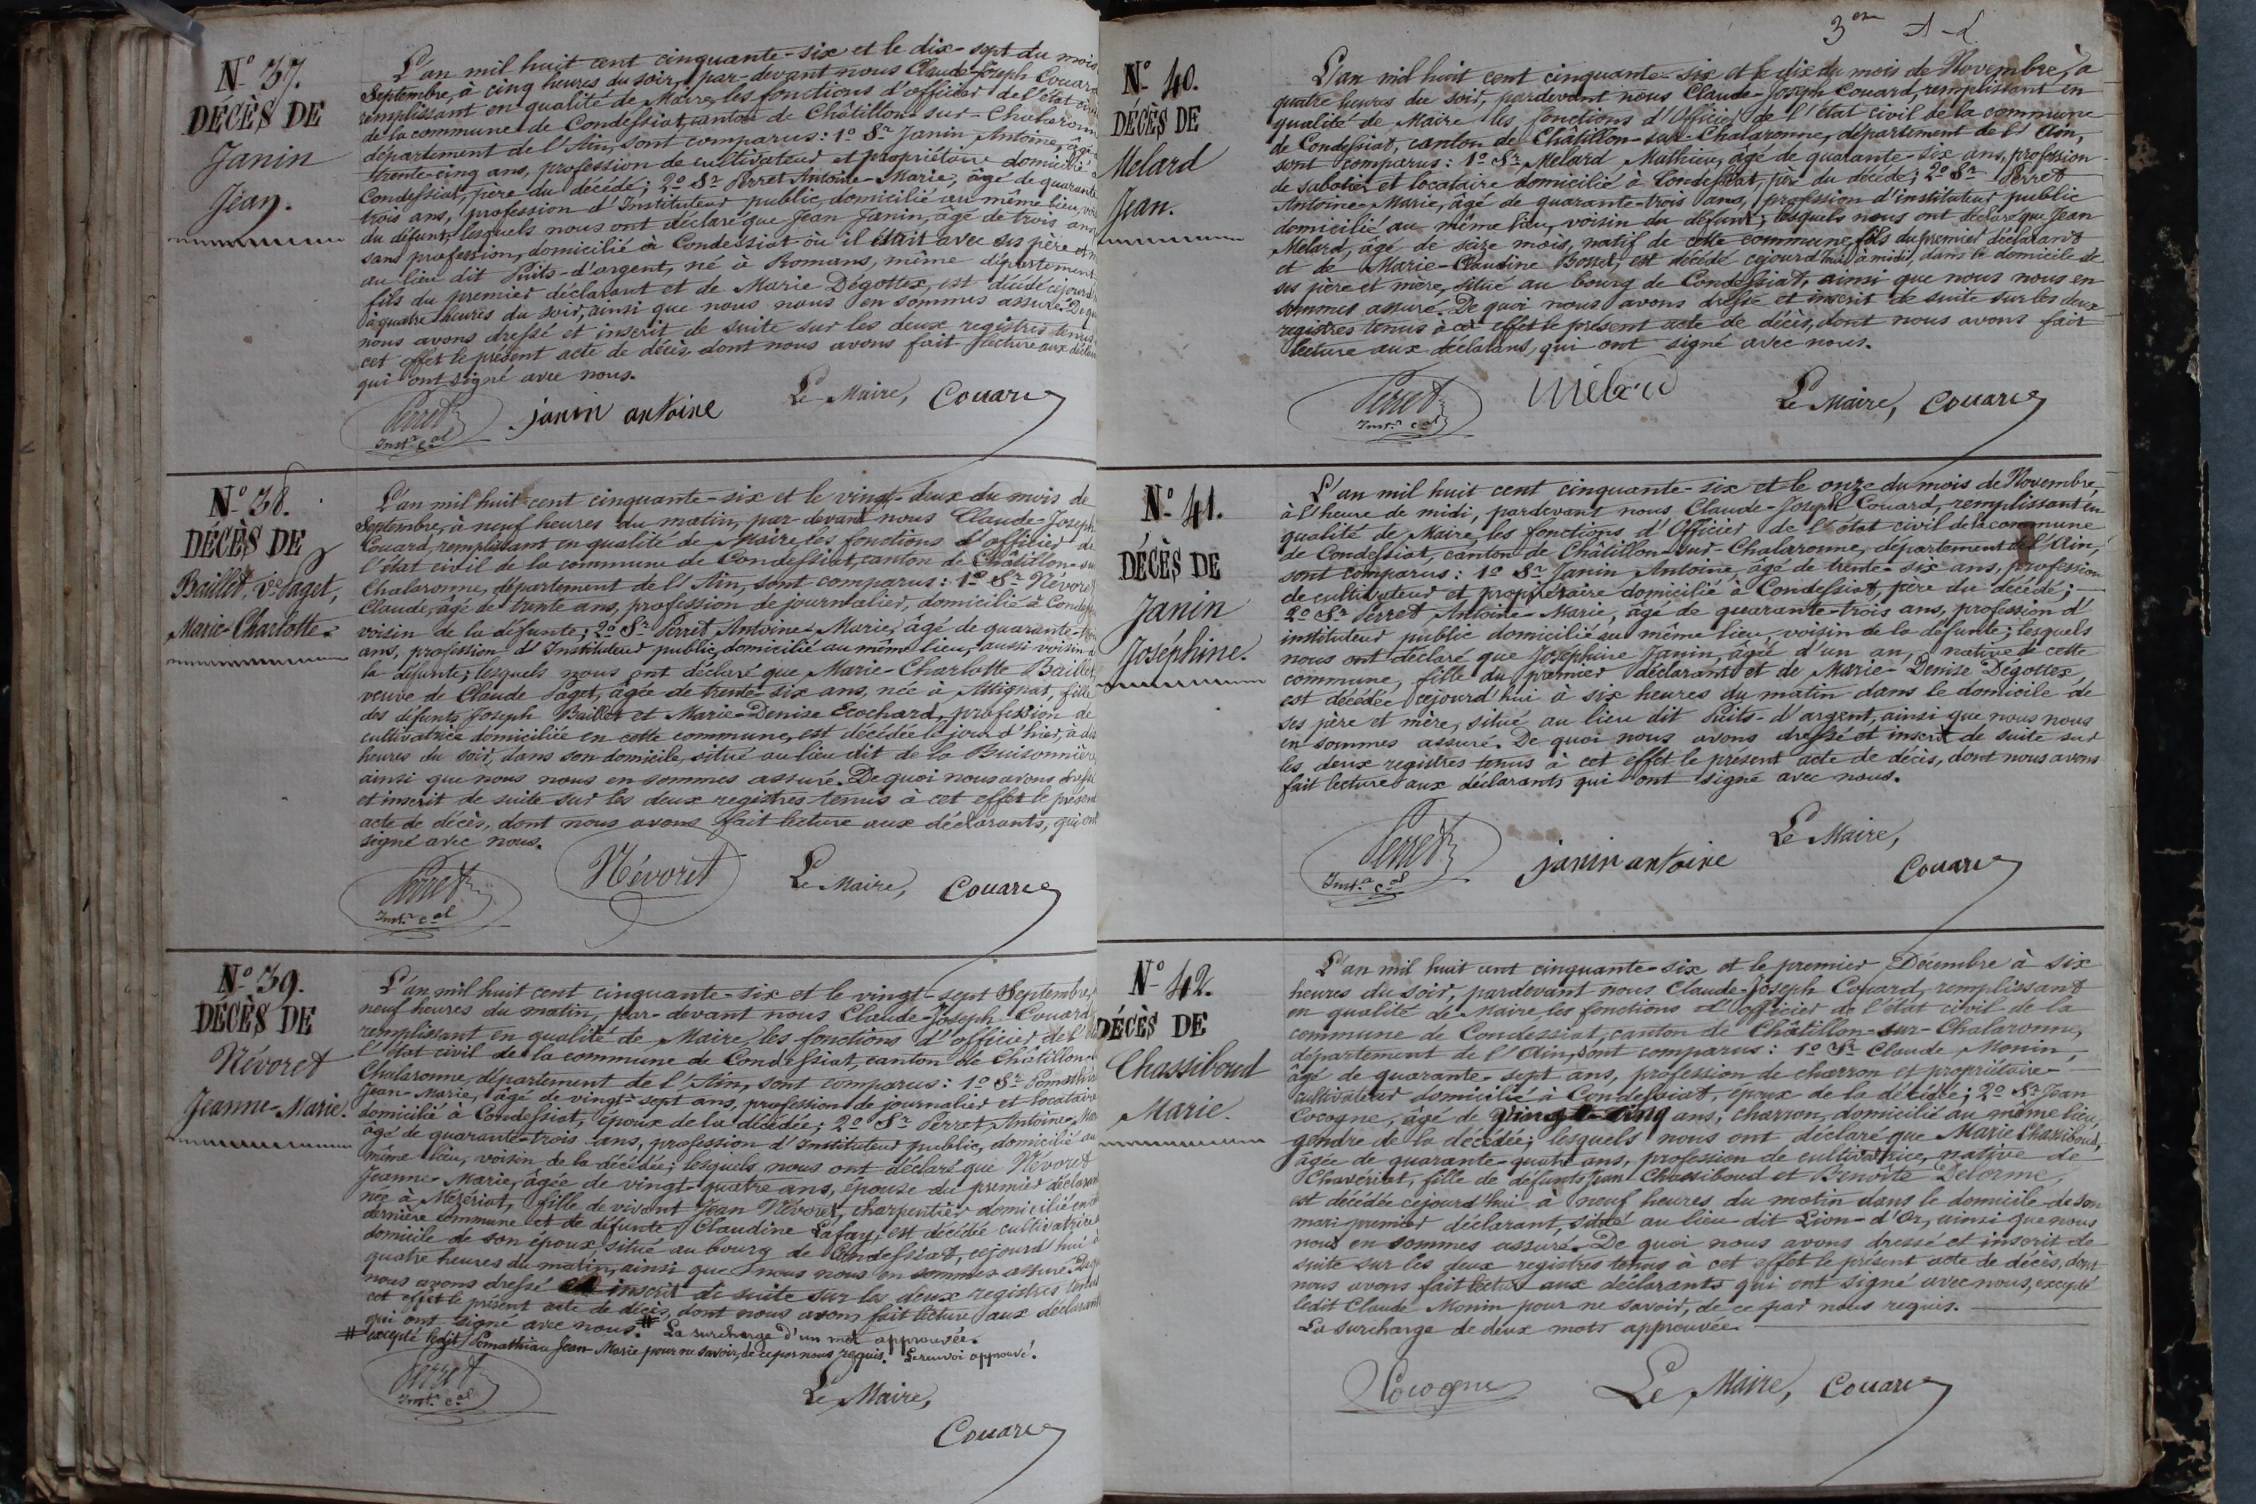 N.º 37.
DÉCÈS DE
Janin
Jean.
L'an mil huit cent cinquante-six et le dix-sept du mois
Septembre, à cinq heures du soir, par-devant nous Claude-Joseph Couard
remplissant en qualité de Maire, les fonctions d'officier de l'état civil
de la commune de Condessiat, canton de Châtillon-sur-Chalaronne
département de l'Ain, sont comparus: 1º Sr Janin Antoine, âgé
trente-cinq ans, profession de cultivateur et propriétaire domicilié à
Condessiat, père du décédé; 2º Sr Perret Antoine-Marie, âgé de quarante
trois ans, profession d'Instituteur public, domicilié au même lieu, voi
du défunt; lesquels nous ont déclaré que Jean Janin, âgé de trois ans
sans profession, domicilié à Condessiat où il était avec ses père et m
au lieu dit Puits-d'argent, né à Romans, même département
fils du premier déclarant et de Marie Dégottex, est décédé cejourd
à quatre heures du soir, ainsi que nous nous en sommes assuré. De qu
nous avons dressé et inscrit de suite sur les deux registres tenus
cet effet le présent acte de décès, dont nous avons fait lecture aux décla
qui ont signé avec nous.
Perret Inst.r c.al janin antoine Le Maire, Couard
N.º 38.
DÉCÈS DE
Baillet, Ve Paget,
Marie-Charlotte.
L'an mil huit cent cinquante-six et le vingt-deux du mois de
Septembre, à neuf heures du matin, par-devant nous Claude-Joseph
Couard, remplissant en qualité de Maire, les fonctions d'officier de
l'état civil de la commune de Condessiat, canton de Châtillon-su
Chalaronne, département de l'Ain, sont comparus: 1º Sr Névoret
Claude, âgé de trente ans, profession de journalier, domicilié à Condess
voisin de la défunte; 2º Sr Perret Antoine-Marie, âgé de quarante-
ans, profession d'Instituteur public, domicilié au même lieu, aussi voisin
la défunte; lesquels nous ont déclaré que Marie-Charlotte Baillet,
veuve de Claude Paget, âgée de trente-six ans, née à Attignat, fille
des défunts Joseph Baillet et Marie-Denise Ecochard, profession de
cultivatrice domiciliée en cette commune, est décédée le jour d'hier, à dix
heures du soir, dans son domicile, situé au lieu dit de la Buisonnière
ainsi que nous nous en sommes assuré. De quoi nous avons dressé
et inscrit de suite sur les deux registres tenus à cet effet le présent
acte de décès, dont nous avons fait lecture aux déclarants, qui ont
signé avec nous.
Perret Inst.r c.al Névoret Le Maire, Couard
N.º 39.
DÉCÈS DE
Névoret
Jeanne-Marie.
L'an mil huit cent cinquante-six et le vingt-sept Septembre,
neuf heures du matin, par-devant nous Claude-Joseph Couard,
remplissant en qualité de Maire, les fonctions d'officier de
l'état civil de la commune de Condessiat, canton de Châtillon-
Chalaronne, département de l'Ain, sont comparus: 1º Sr Pomathiau
Jean-Marie, âgé de vingt-sept ans, profession de journalier et locataire
domicilié à Condessiat, époux de la décédée; 2º Sr Perret Antoine-Mar
âgé de quarante-trois ans, profession d'Instituteur public, domicilié au
même lieu, voisin de la décédée; lesquels nous ont déclaré que Névoret
Jeanne-Marie, âgée de vingt-quatre ans, épouse du premier déclaran
née à Mézériat, fille de vivant Jean Névoret, charpentier domicilié en
dernière commune et de défunte Claudine Lafay, est décédée cultivatrice
domicile de son époux, situé au bourg de Condessiat, cejourd'hui à
quatre heures du matin, ainsi que nous nous en sommes assuré. De qu
nous avons dressé et inscrit de suite sur les deux registres tenus
cet effet le présent acte de décès, dont nous avons fait lecture aux déclarant
qui ont signé avec nous. # La surcharge d'un mot approuvée.
# excepté ledit Pomathiau Jean-Marie pour ne savoir, de ce par nous requis. Le renvoi approuvé.
Perret Inst.r c.al Le Maire,
Couard
3em
N.º 40.
DÉCÈS DE
Melard
Jean.
L'an mil huit cent cinquante-six et le dix du mois de Novembre, à
quatre heures du soir, pardevant nous Claude-Joseph Couard, remplissant en
qualité de Maire les fonctions d'Officier de l'état civil de la commune
de Condessiat, canton de Châtillon-sur-Chalaronne, département de l'Ain,
sont comparus: 1º Sr Melard Mathieu, âgé de quarante-six ans, profession
de sabotier et locataire domicilié à Condessiat, père du décédé; 2º Sr Perret
Antoine-Marie, âgé de quarante-trois ans, profession d'instituteur public
domicilié au même lieu, voisin du défunt; lesquels nous ont déclaré que Jean
Melard, âgé de seize mois, natif de cette commune, fils du premier déclarant
et de Marie-Claudine Bosset, est décédé cejourd'hui à midi, dans le domicile de
ses père et mère, situé au bourg de Condessiat, ainsi que nous nous en
sommes assuré. De quoi nous avons dressé et inscrit de suite sur les deux
registres tenus à cet effet le présent acte de décès, dont nous avons fait
lecture aux déclarans, qui ont signé avec nous.
Perret Inst.r c.al Mélard Le Maire, Couard
N.º 41.
DÉCÈS DE
Janin
Joséphine.
L'an mil huit cent cinquante-six et le onze du mois de Novembre,
à l'heure de midi, pardevant nous Claude-Joseph Couard, remplissant en
qualité de Maire, les fonctions d'Officier de l'état civil de la commune
de Condessiat, canton de Châtillon-sur-Chalaronne, département de l'Ain,
sont comparus: 1º Sr Janin Antoine, âgé de trente-six ans, profession
de cultivateur et propriétaire domicilié à Condessiat, père du décédé;
2º Sr Perret Antoine-Marie, âgé de quarante-trois ans, profession d'
instituteur public domicilié au même lieu, voisin de la défunte; lesquels
nous ont déclaré que Joséphine Janin, âgée d'un an, native de cette
commune, fille du premier déclarant et de Marie-Denise Dégottex,
est décédée cejourd'hui à six heures du matin dans le domicile de
ses père et mère, situé au lieu dit Puits-d'argent, ainsi que nous nous
en sommes assuré. De quoi nous avons dressé et inscrit de suite sur
les deux registres tenus à cet effet le présent acte de décès, dont nous avons
fait lecture aux déclarants qui ont signé avec nous.
Perret Inst.r c.al janin antoine Le Maire,
Couard
N.º 42.
DÉCÈS DE
Chassiboud
Marie.
L'an mil huit cent cinquante-six et le premier Décembre à six
heures du soir, pardevant nous Claude-Joseph Couard, remplissant
en qualité de Maire les fonctions d'officier de l'état civil de la
commune de Condessiat, canton de Châtillon-sur-Chalaronne,
département de l'Ain, sont comparus: 1º Sr Claude Monin,
âgé de quarante-sept ans, profession de charron et propriétaire-
cultivateur domicilié à Condessiat, époux de la décédée; 2º Sr Jean
Cocogne, âgé de vingt-cinq ans, charron, domicilié au même lieu,
gendre de la décédée; lesquels nous ont déclaré que Marie Chassiboud,
âgée de quarante-quatre ans, profession de cultivatrice, native de
Chavériat, fille de défunts Jean Chassiboud et Benoîte Delorme,
est décédée cejourd'hui à neuf heures du matin dans le domicile de son
mari premier déclarant, situé au lieu dit Lion-d'Or, ainsi que nous
nous en sommes assuré. De quoi nous avons dressé et inscrit de
suite sur les deux registres tenus à cet effet le présent acte de décès, dont
nous avons fait lecture aux déclarants qui ont signé avec nous, excepté
ledit Claude Monin pour ne savoir, de ce par nous requis.
La surcharge de deux mots approuvée.
Cocogne Le Maire, Couard